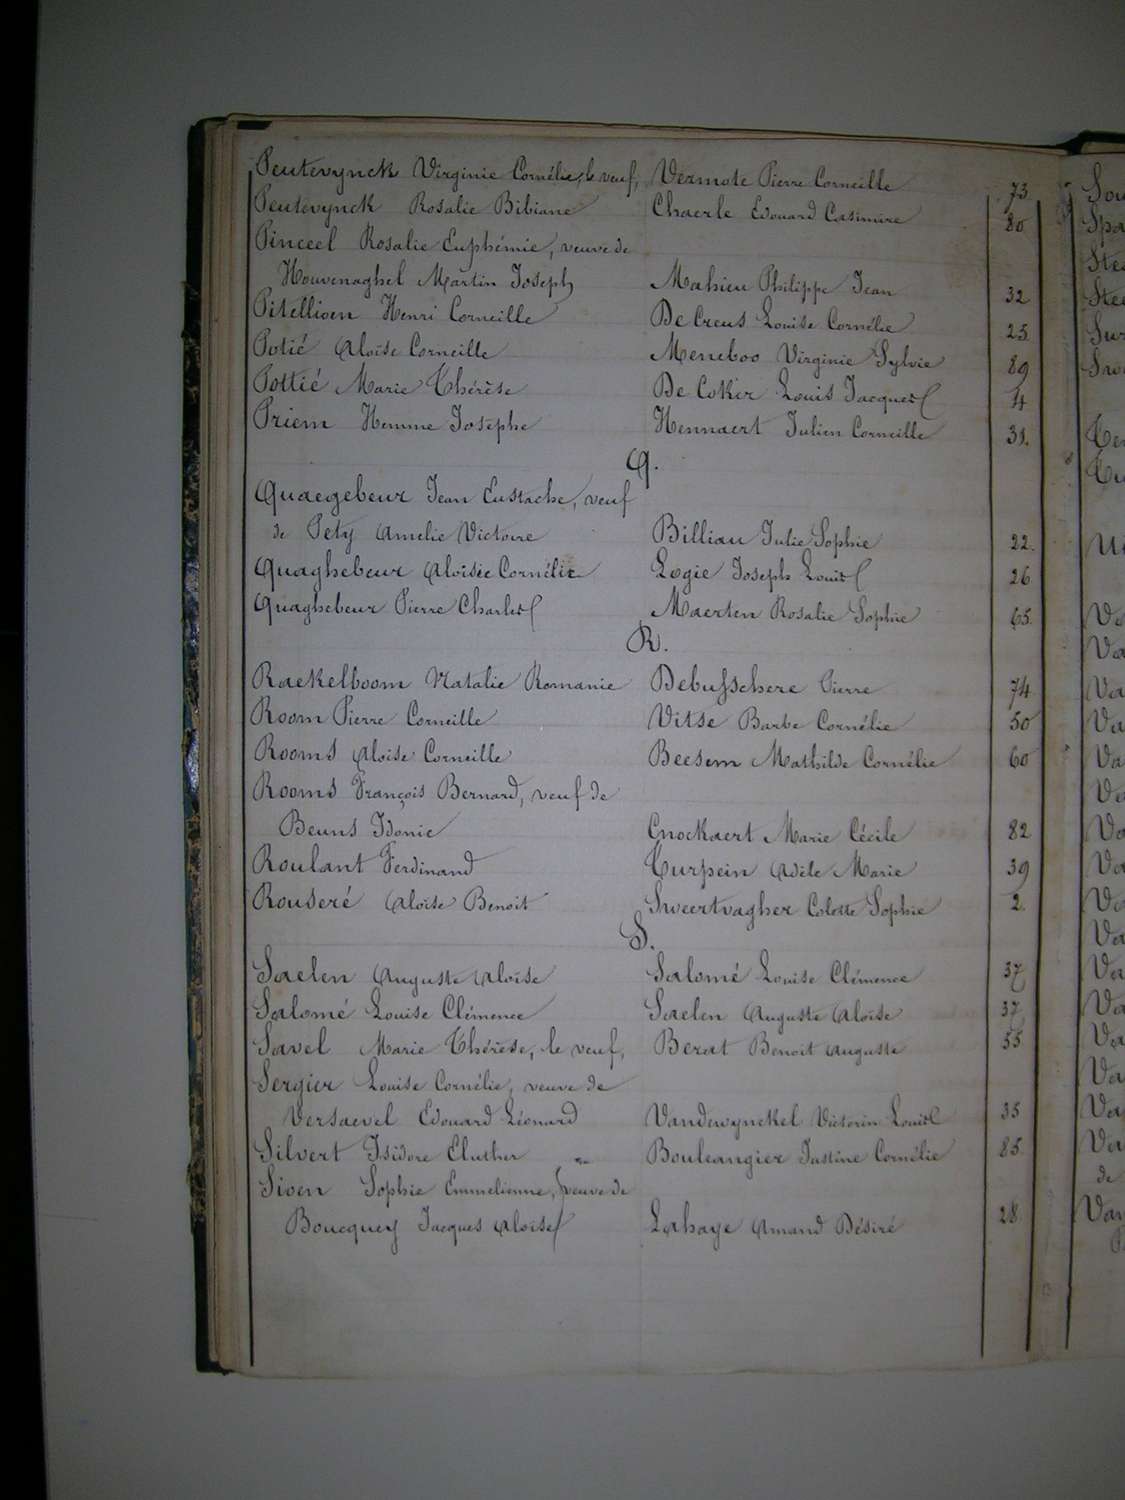 Peutevynck Virginie Cornélie, le veuf, Vermote Pierre Corneille 73
Peutevynck Rosalie Bibiane Chaerle Edouard Casimire 80
Pinceel Rosalie Euphémie, veuve de
Houvenaghel Martin Joseph Mahieu Philippe Jean 32
Pitellioen Henri Corneille De Creus Louise Cornélie 25
Potié Aloïse Corneille Meneboo Virginie Sylvie 89
Pottié Marie Thérèse De Coker Louis Jacques 4
Priem Hemme Josephe Hennaert Julien Corneille 31.
Q.
Quaegebeur Jean Eustache, veuf
de Pety Amelie Victoire Billiau Julie Sophie 22.
Quaghebeur Aloïsée Cornélie Logie Joseph Louis 26
Quaghebeur Pierre Charles Maerten Rosalie Sophie 65.
R.
Raekelboom Natalie Romanie Debusschere Pierre 74
Room Pierre Corneille Vitse Barbe Cornélie 50
Rooms Aloïse Corneille Beesem Mathilde Cornélie 60
Rooms François Bernard, veuf de
Beuns Idonie Cnockaert Marie Cécile 82
Roulant Ferdinand Turpein Adèle Marie 39
Rouseré Aloïse Benoit Sweertvagher Colette Sophie 2.
S.
Saelen Auguste Aloïse Salomé Louise Clémence 37
Salomé Louise Clémence Saelen Auguste Aloïse 37
Savel Marie Thérèse, le veuf, Berat Benoit Auguste 55
Sergier Louise Cornélie, veuve de
Versaevel Edouard Léonard Vandewynckel Victorin Louis 35
Silvert Isidore Cluther Bouleangier Justine Cornélie 85
Sioen Sophie Emmelienne, veuve de
Boucquey Jacques Aloïse Lahaye Amand Désiré 28